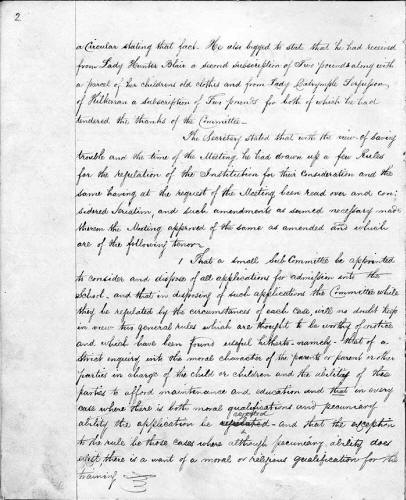 2
a Circular stating that fact. He also begged to state that he had received
from Lady Hunter Blair a second subscription of Two pounds along with
a parcel of her childrens old clothes and from Lady Dalrymple Fergusson,
of Kilkerran a subscription of Two pounds for both of which he had
tendered the thanks of the Committee —
The Secretary stated that with the view of saving
trouble and the time of the Meeting he had drawn up a few Rules
for the regulation of the Institution for their Consideration and the
same having at the request of the Meeting been read over and con:
sidered seriatim, and such amendments as seemed necessary made
thereon the Meeting approved of the same as amended and which
are of the following tenor —
1 That a small Sub Committee be appointed
to consider and dispose of all applications for admission into the
School – and that in disposing of such applications the Committee while
they be regulated by the circumstances of each case, will no doubt keep
in view two general rules which are thought to be worthy of notice
and which have been found useful hitherto namely – that of a
strict enquiry into the moral character of the parents or parent or other
parties in charge of the child or children and the ability of these
parties to afford maintenance and education and that in every
case where there is both moral qualifications and pecuniary
ability the application be rejected – and that the exception
to the rule be those cases where although pecuniary ability does
exist, there is a want of a moral or religious qualification for the
training